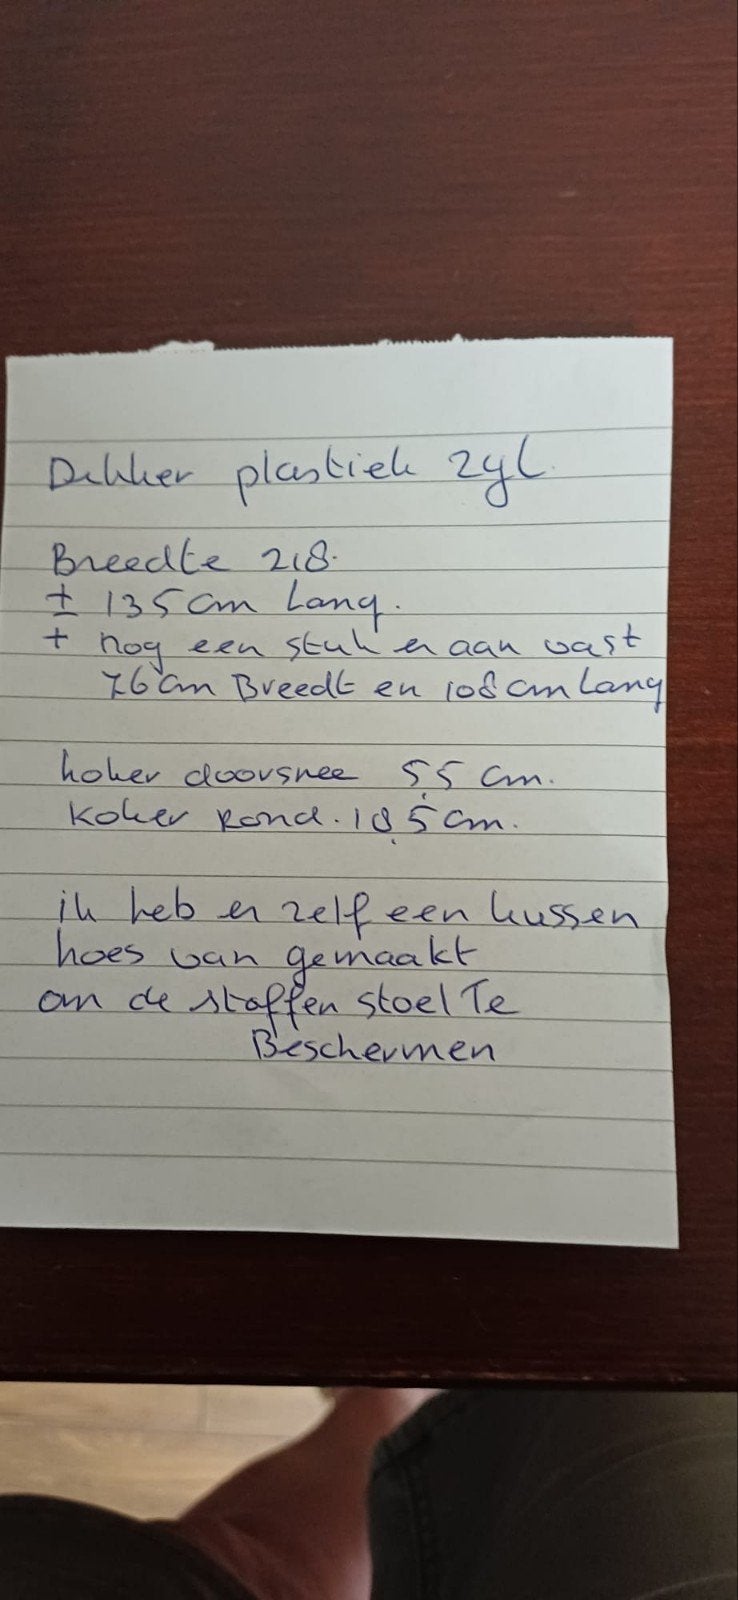 Dikker plastiek zyl.
Breedte 218.
± 135 cm Lang.
+ nog een stuk er aan vast
76 cm Breedt en 108 cm Lang
koker doorsnee 5,5 cm.
Koker Rond. 18,5 cm.
ik heb er zelf een kussen
hoes van gemaakt
om de stoffen stoel Te
Beschermen